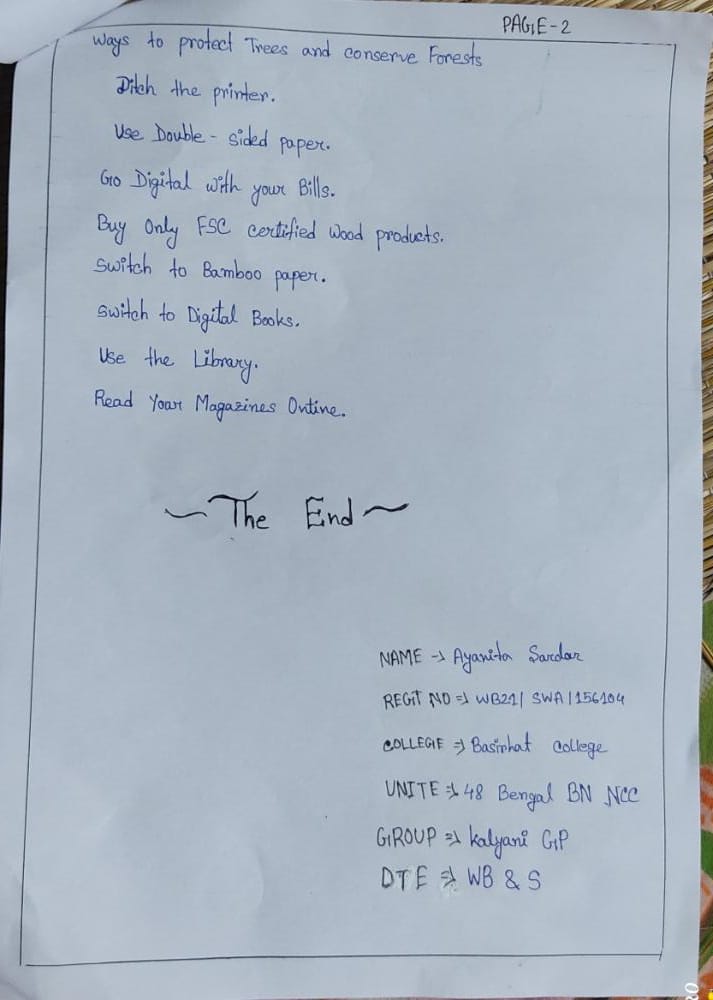 PAGE-2
Ways to protect Trees and conserve Forests
Ditch the printer.
Use Double - sided paper.
Go Digital with your Bills.
Buy Only FSC certified Wood products.
Switch to Bamboo paper.
Switch to Digital Books.
Use the Library.
Read Your Magazines Ontine.
~ The End ~
NAME → Ayanita Sardar
REGIT NO ⇒ WB21/ SWA/156104
COLLEGE ⇒ Basirhat College
UNITE ⇒ 48 Bengal BN NCC
GROUP ⇒ Kalyani GP
DTE ⇒ WB & S